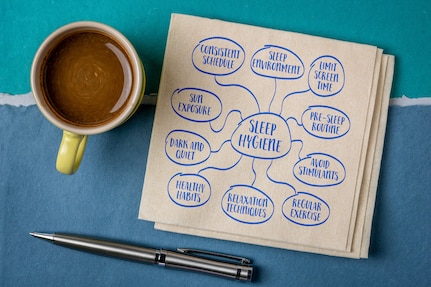 CONSISTENT
SCHEDULE
SLEEP
ENVIRONMENT
LIMIT
SCREEN
TIME
SUN
EXPOSURE
PRE-SLEEP
ROUTINE
SLEEP
HYGIENE
DARK AND
QUIET
AVOID
STIMULANTS
HEALTHY
HABITS
RELAXATION
TECHNIQUES
REGULAR
EXERCISE